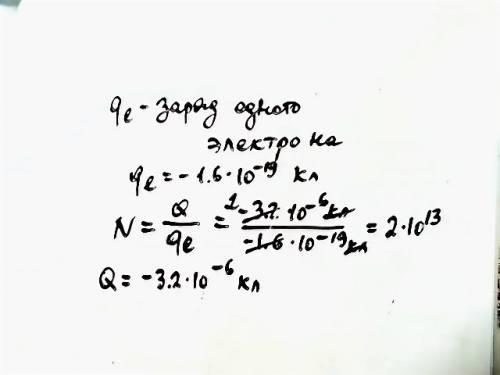 qe - заряд одного
электрона
qe = - 1.6 · 10^-19 кл
N = Q/qe = -3.2 · 10^-6 кл / -1.6 · 10^-19 кл = 2 · 10^13
Q = -3.2 · 10^-6 кл